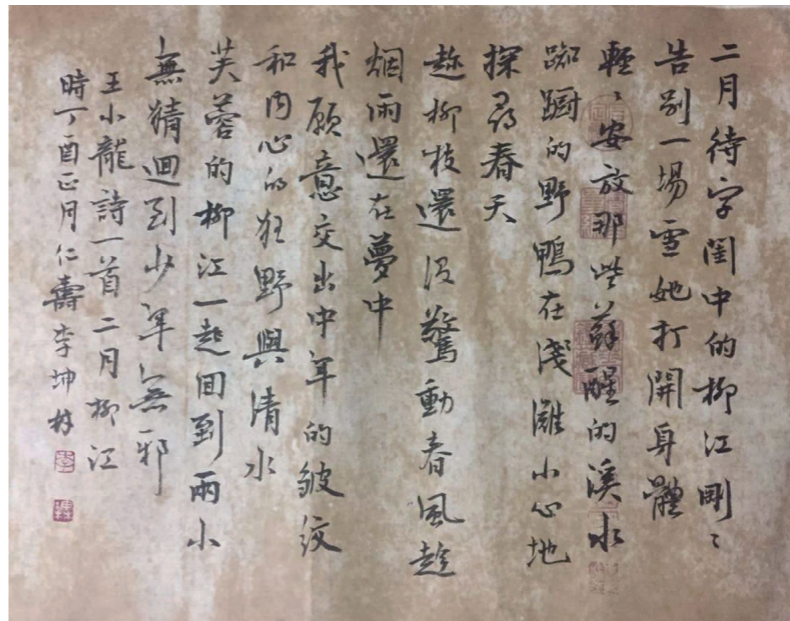 二月待字闺中的柳江剛〻
告别一場雪她打開身體
輕〻安放那些蘇醒的溪水
踟蹰的野鴨在淺灘小心地
探尋春天
趁柳枝還没驚動春風趁
烟雨還在夢中
我願意交出中年的皱紋
和内心的狂野與清水
芙蓉的柳江一起回到兩小
無猜迴到少年無邪
王小龍詩一首二月柳江
時丁酉正月仁壽李坤林